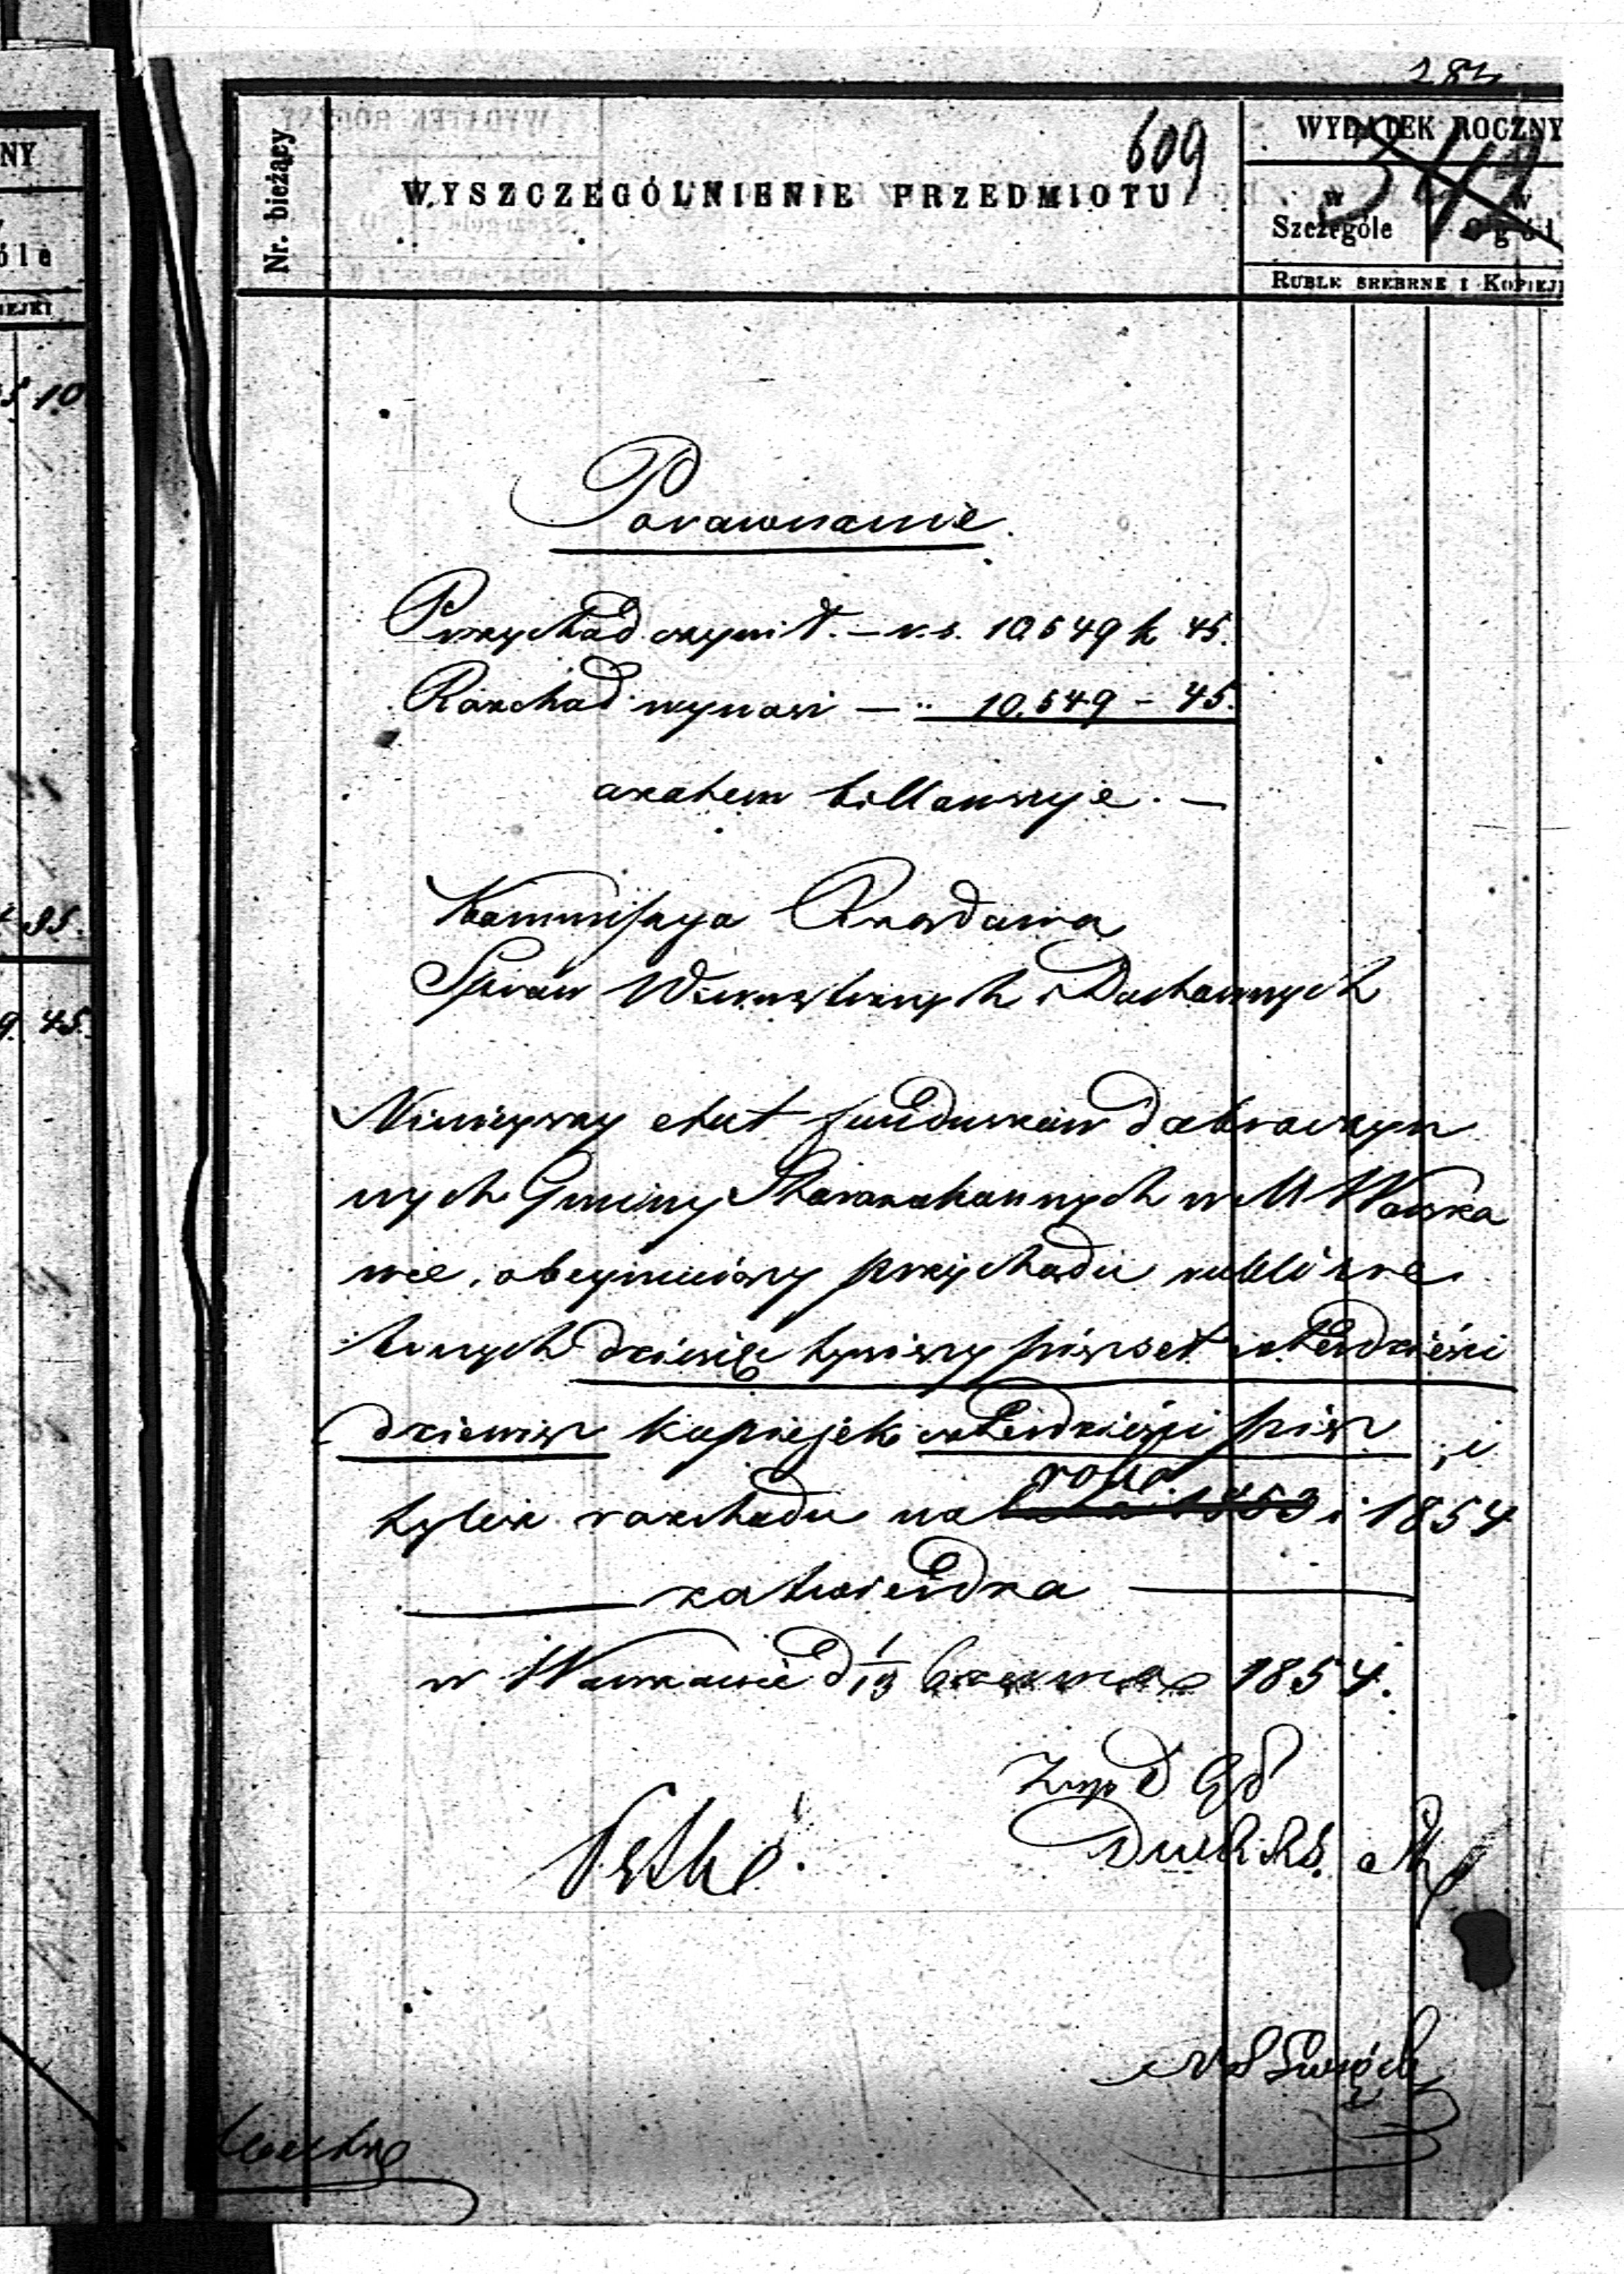 NY
óle
IEJKI
5 10
95.
9. 45.
609
Nr. bieżący
WYSZCZEGÓLNIENIE PRZEDMIOTU
WYDATEK ROCZNY
w Szczególe
w Ogól
RUBLE SREBRNE I KOPIEJ
Porównanie
Przychód czyni t. – r.s. 10549 k 45.
Rozchód wynosi – " 10.549 – 45.
a zatem billansuje. –
Kommissya Rządowa
Spraw Wewnętrznych i Duchownych
Niniejszy etat funduszów dobroczyn
nych Gminy Starozakonnych w M Warsza
wie, obejmujący przychodu rubli sre
brnych dziesięć tysięcy pięćset czterdzieści
dziewięć kopiejek czterdzieści pięć, i
tyleż rozchodu na roku 1853 i 1854
zatwierdza
w Warszawie d 1/13 Czerwca 1854.